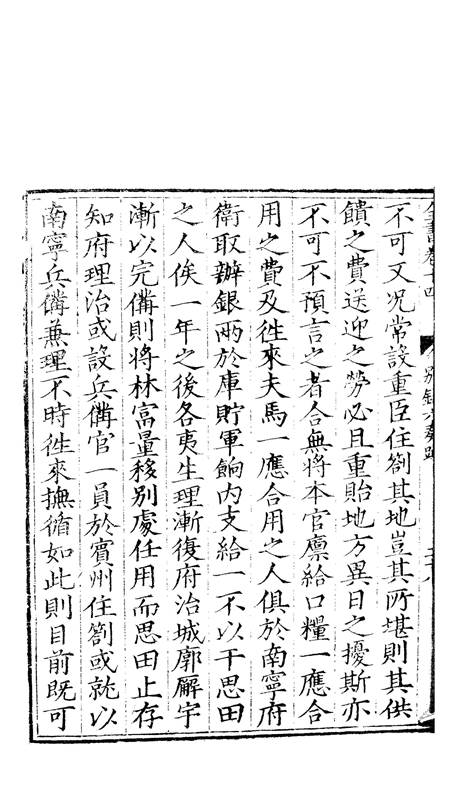 全書卷十四　別錄六奏疏
不可又況常設重臣住劄其地豈其所堪則其供
饋之費送迎之勞必且重貽地方異日之擾斯亦
不可不預言之者合無將本官廪給口糧一應合
用之費及徃來夫馬一應合用之人俱於南寧府
衛取辦銀兩於庫貯軍餉內支給一不以干思田
之人俟一年之後各夷生理漸復府治城郭廨宇
漸以完備則將林富量移別處任用而思田止存
知府理治或設兵備官一員於賓州住劄或就以
南寧兵備兼理不時徃來撫循如此則目前旣可